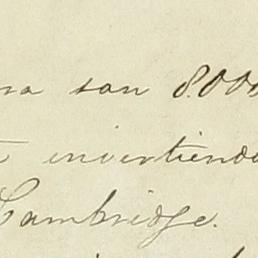 na son 8.000
invertiendo
Cambridge.